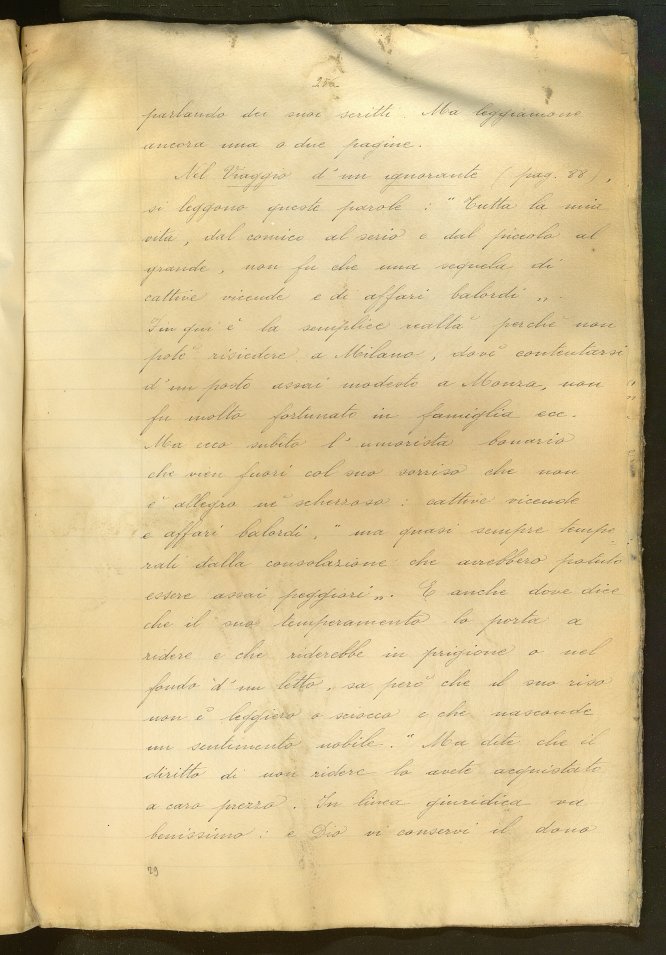 parlando dei suoi scritti. Ma leggiamone
ancora una o due pagine.
Nel Viaggio d'un ignorante (pag. 88),
si leggono queste parole: "Tutta la mia
vita, dal comico al serio e dal piccolo al
grande, non fu che una sequela di
cattive vicende e di affari balordi „.
Fin qui è la semplice realtà perchè non
potè risiedere a Milano, dovè contentarsi
d'un posto assai modesto a Monza, non
fu molto fortunato in famiglia ecc.
Ma ecco subito l'umorista bonario
che vien fuori col suo sorriso che non
è allegro nè scherzoso: cattive vicende
e affari balordi, "ma quasi sempre tempe
rati dalla consolazione che avrebbero potuto
essere assai peggiori „. E anche dove dice
che il suo temperamento lo porta a
ridere e che riderebbe in prigione o nel
fondo d'un letto, sa però che il suo riso
non è leggiero o sciocco e che nasconde
un sentimento nobile. "Ma dite che il
diritto di non ridere lo avete acquistato
a caro prezzo. In linea giuridica va
benissimo: e Dio vi conservi il dono
29